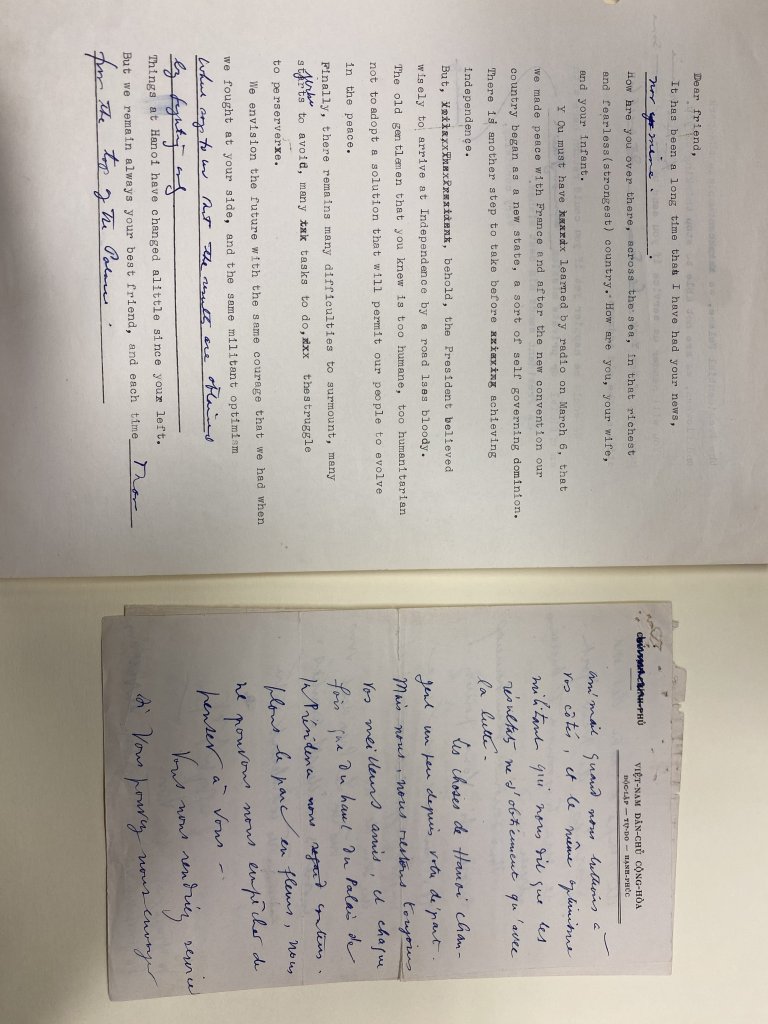 Dear friend,
It has been a long time that I have had your news,
nor you mine.
How are you over there, across the sea, in that richest
and fearless(strongest) country. How are you, your wife,
and your infant.
Y Ou must have learned by radio on March 6, that
we made peace with France and after the new convention our
country began as a new state, a sort of self governing dominion.
There is another step to take before achieving
independence.
But, behold, the President believed
wisely to arrive at Independence by a road lses bloody.
The old gentlemen that you knew is too humane, too humanitarian
not to adopt a solution that will permit our people to evolve
in the peace.
Finally, there remains many difficulties to surmount, many
to avoid, many tasks to do, thestruggle
to perserverxe.
We envision the future with the same courage that we had when
we fought at your side, and the same militant optimism
which says to us that the results are obtained
by fighting only
Things at Hanoi have changed alittle since your left.
But we remain always your best friend, and each time
from the top of the Palais
VIỆT-NAM DÂN-CHỦ CỘNG-HÒA
ĐỘC-LẬP — TỰ-DO — HẠNH-PHÚC
CHÍNH-PHỦ
animait quand nous luttions à
vos côtés, et le même optimisme
militant qui nous dit que les
résultats ne s'obtiennent qu'avec
la lutte.
Les choses de Hanoi chan-
gent un peu depuis votre départ.
Mais nous, nous restons toujours
vos meilleurs amis, et chaque
fois que du haut du Palais de
la Présidence nous
le parc en fleurs, nous
ne pouvons nous empêcher de
penser à vous —
Vous nous rendriez service
si vous pouviez nous envoyer